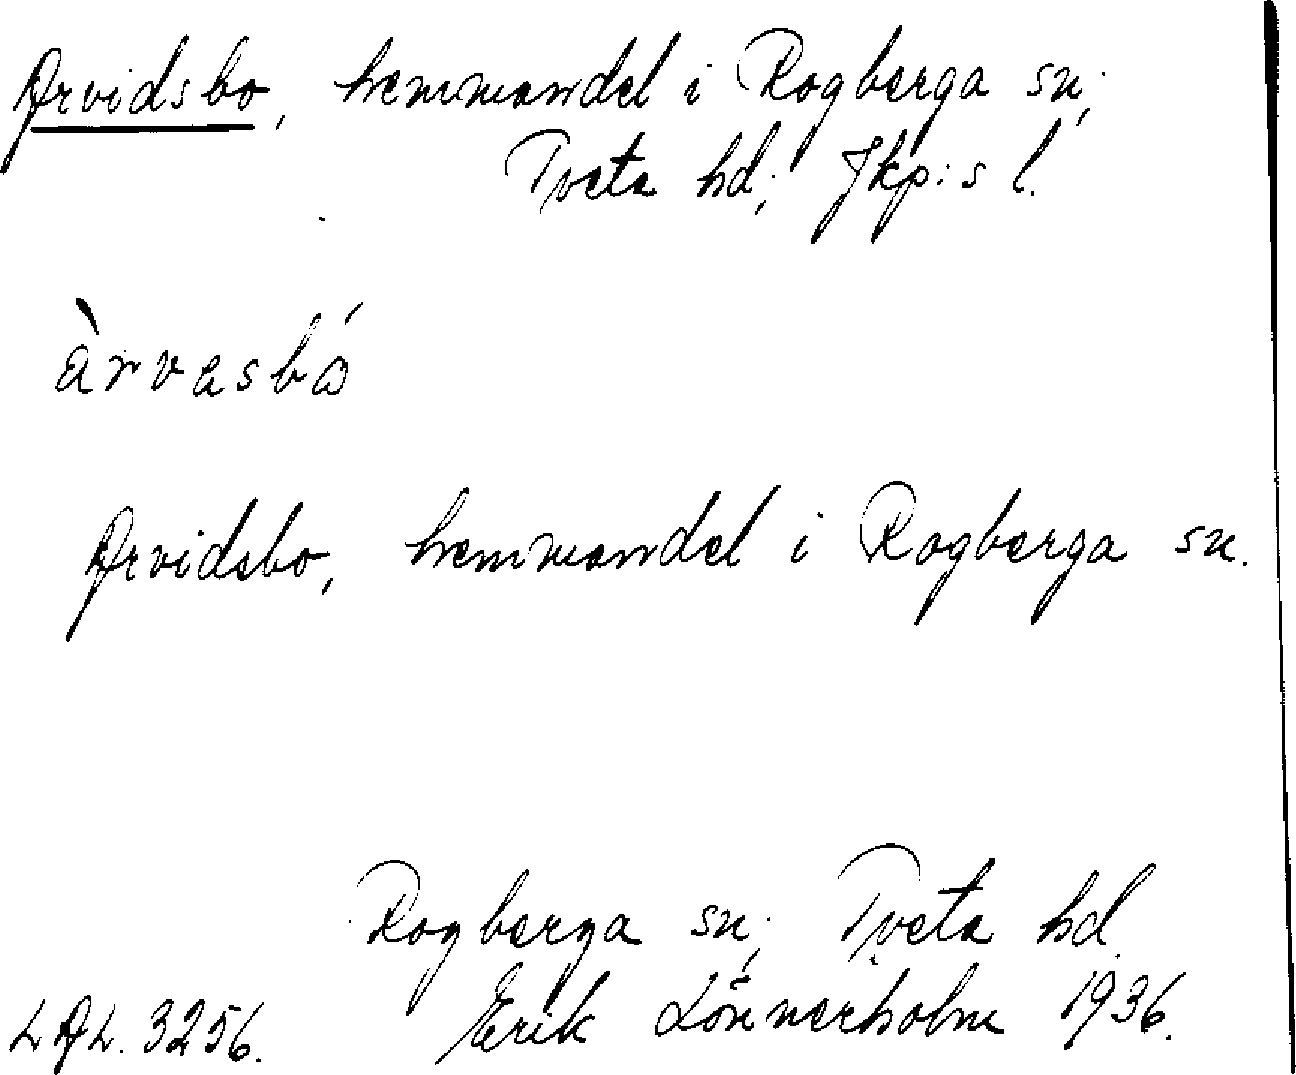 Arvidsbo, hemmandel i Rogberga sn;
Tveta hd; Jkp:s l.
àrvasbó
Arvidsbo, hemmandel i Rogberga sn.
Rogberga sn; Tveta hd.
LAL. 3256. Erik Lönnerholm 1936.